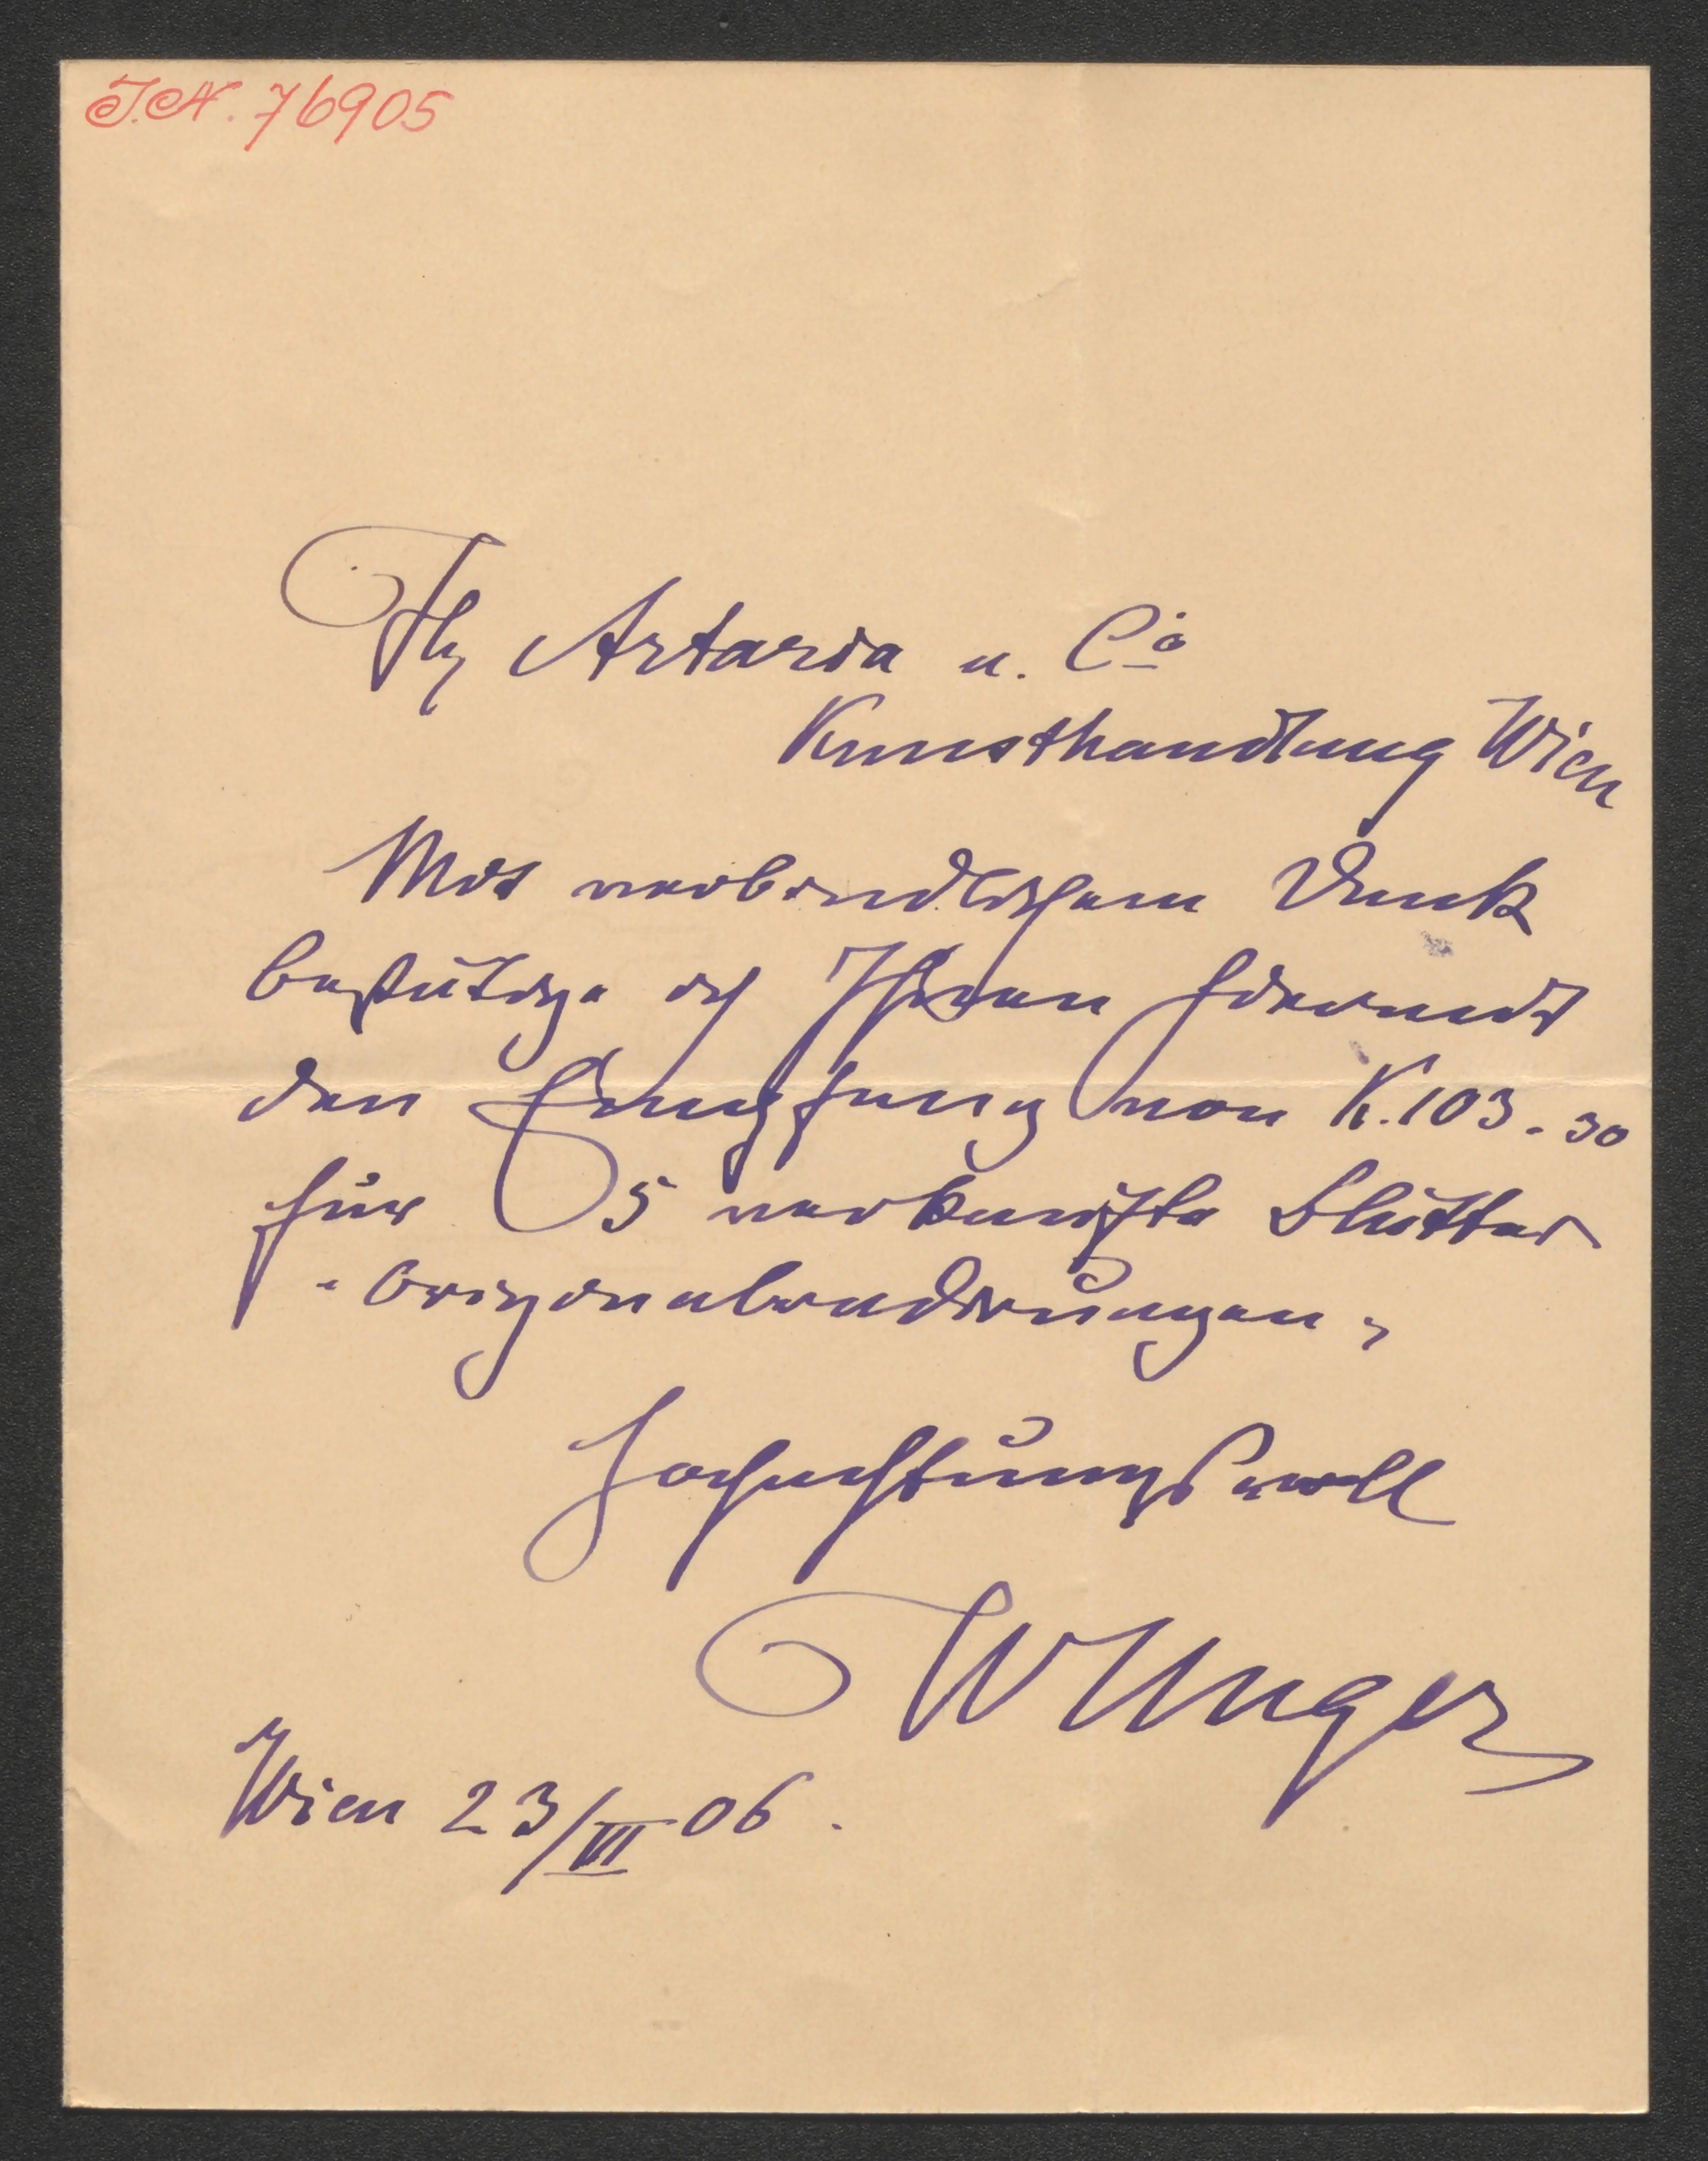 J.N. 76905
Artaria u. Cio
Kunsthandlung Wien
Mit verbindlichem Dank
bestätige ich Ihnen hiermit
den Empfang von K. 103.30
für 5 verkaufte Blätter
Originalradirungen,
Hochachtungsvoll
W Unger
Wien 23/VI 06.